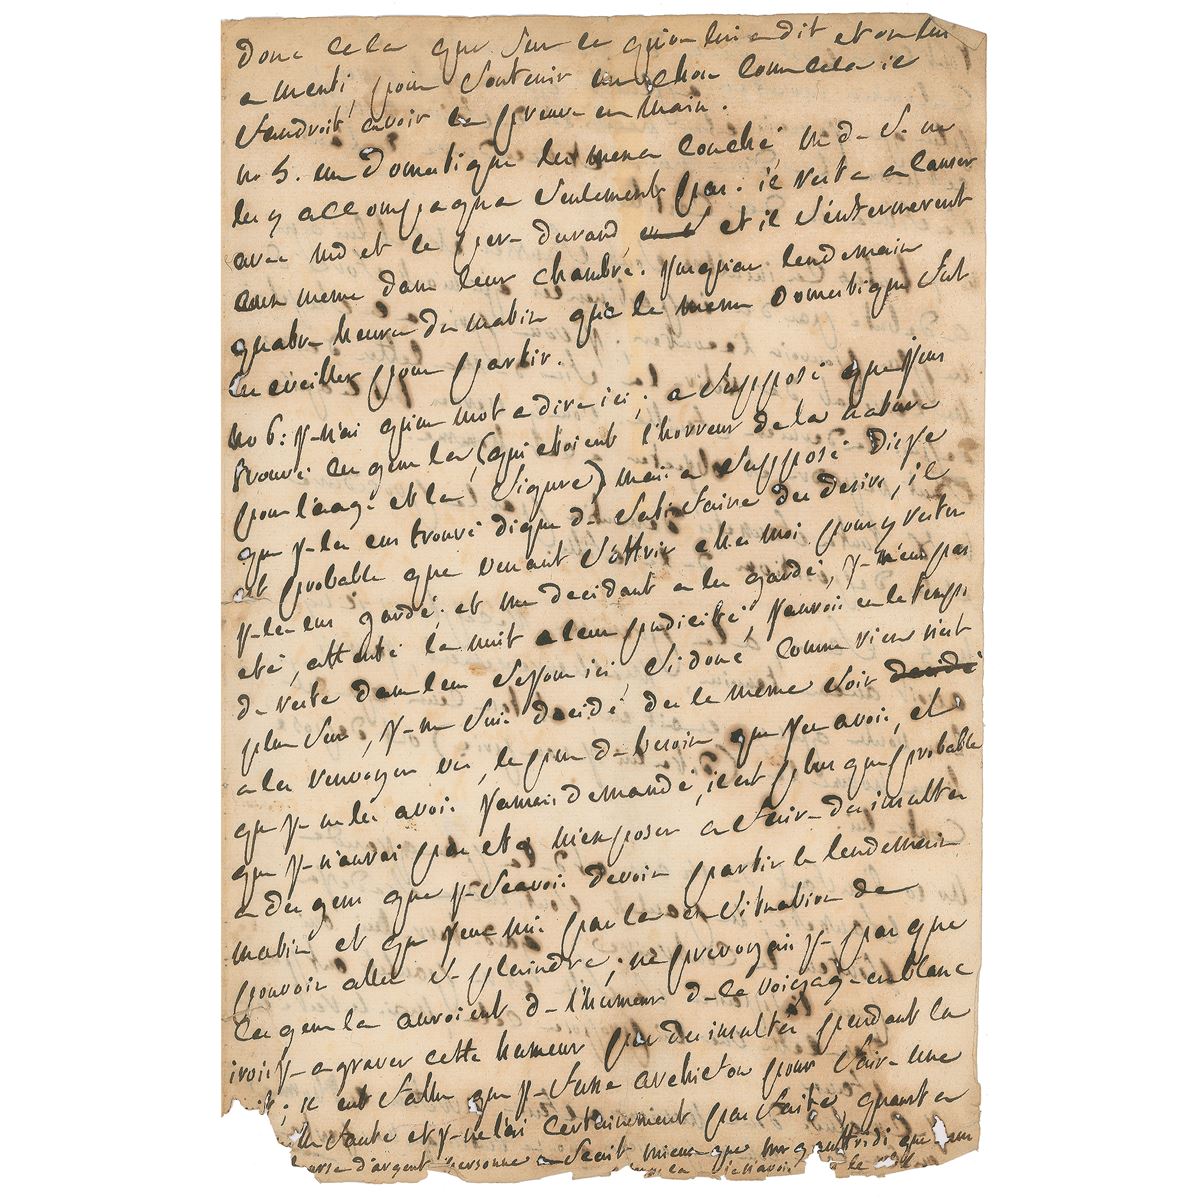 donc cela que sur ce qu'on lui a dit et on lui
a menti, pour soutenir un chose comme cela il
faudroit avoir la preuve en main.
no 5. un domestique les mena couché m d- S. ne
les y accompagna seulement pas. il resta a causer
avec md et le per- durand et il s'enfermerent
eux meme dans leur chambre. jusquau lendemain
quatre heure du matin que le meme domestique fut
les eveiller pour partir.
no 6: j-n'ai qu'un mot a dire ici; a supposé que j'eus
trouvé ces gens la, (qui etoient l'horreur de la nature
pour l'aage et la figure) mais a supposé dis-je
que j-les eus trouvé digne d- satisfaire des desirs, il
est probable que venant s'offrir chez moi pour y rester
j-les eus gardé; et me decidant a les gardé, j-n'eus pas
eté, attenté la nuit a leur pudicité, j'auvois eu le temps
de reste dans leur sejour ici, si donc comme rien n'est
plus sur, j-me suis decidé des le meme soir decidé
a les renvoyer vu, le peu d- besoin que j'en avois, et
que j-ne les avois jamais demandé, il est plus que probable
que j-n'aurai pas eté m'exposer a fair- des insultes
a des gens que j-scavois devoir partir le lendemain
matin et que j'eus mis par la en situation de
pouvoir aller s- plaindre; ne prevoyais j- pas que
ces gens la auroient d- l'humeur d- le voiyage en blanc
irois j- agraver cette humeur par des insultes pendant la
il eut fallu que j- fusse archifou pour faire une
faute et j-ne l'ai certainement pas faite, quant a
bourse d'argent personne scait mieux que mr gauffridi que